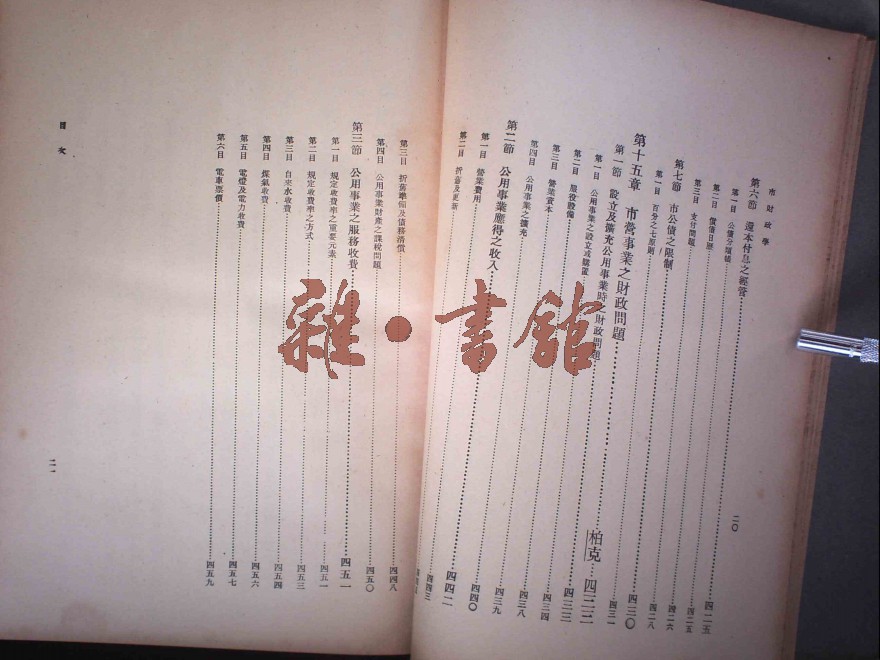 市財政學
二〇
第六節 還本付息之經管 四二五
第一目 公債分類帳 四二五
第二目 償債日歷 四二六
第三目 支付問題 四二八
第七節 市公債之限制 四三〇
第一目 百分之七原則 四三一
第十五章 市營事業之財政問題 柏克 四三三
第一節 設立及擴充公用事業時之財政問題 四三三
第一目 公用事業之設立或購置 四三四
第二目 服役設備 四三八
第三目 營業資本 四三九
第四目 公用事業之擴充 四四〇
第二節 公用事業應得之收入 四四二
第一目 營業費用 四四三
第二目 折舊及更新
第三目 折舊準備及債務清償 四四八
第四目 公用事業財產之課稅問題 四五〇
第三節 公用事業之服務收費 四五一
第一目 規定收費率之重要元素 四五一
第二目 規定收費率之方式 四五三
第三目 自來水收費 四五四
第四目 煤氣收費 四五六
第五目 電燈及電力收費 四五七
第六目 電車票價 四五九
目次
二一
雜·書館